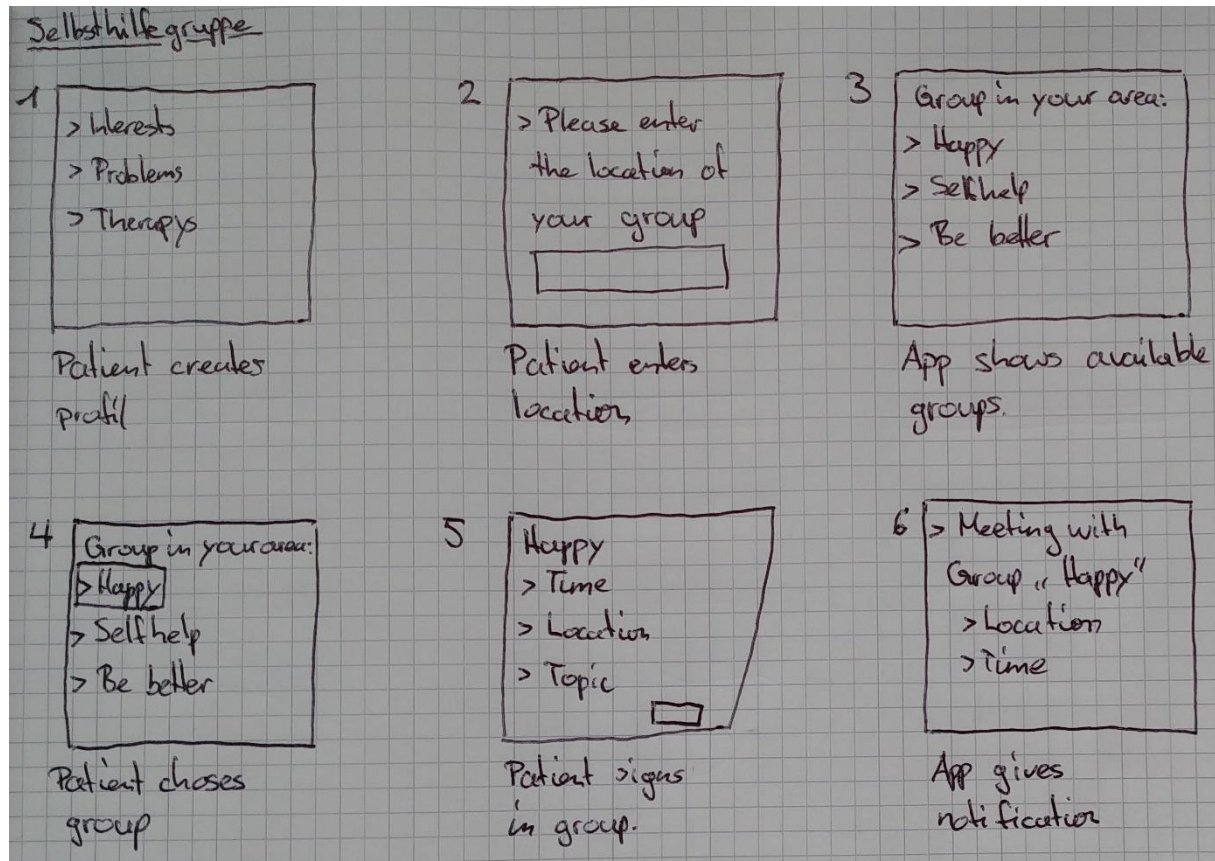 Selbsthilfegruppe
1
> Interests
> Problems
> Therapys
Patient creates
profil
2
> Please enter
the location of
your group
Patient enters
location
3
Group in your area:
> Happy
> Selfhelp
> Be better
App shows available
groups.
4
Group in your area:
> Happy
> Selfhelp
> Be better
Patient choses
group
5
Happy
> Time
> Location
> Topic
Patient signs
in group.
6
> Meeting with
Group „Happy"
> Location
> Time
App gives
notification